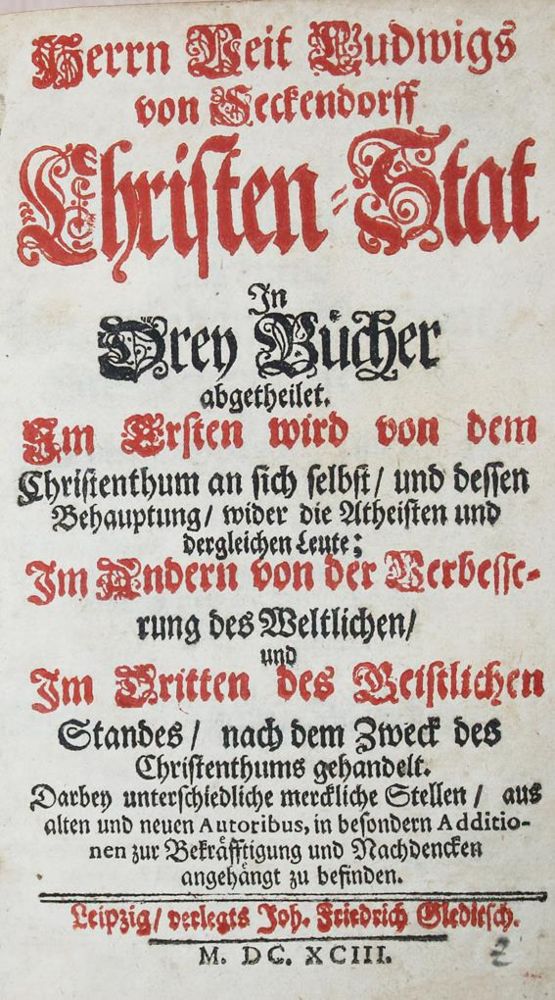 Herrn Veit Ludwigs
von Seckendorff
Christen-Stat
In
Drey Bücher
abgetheilet.
Im Ersten wird von dem
Christenthum an sich selbst / und dessen
Behauptung / wider die Atheisten und
dergleichen Leute;
Im Andern von der Verbesse-
rung des Weltlichen /
und
Im Dritten des Geistlichen
Standes / nach dem Zweck des
Christenthums gehandelt.
Darbey unterschiedliche merckliche Stellen / aus
alten und neuen Autoribus, in besondern Additio-
nen zur Bekräfftigung und Nachdencken
angehängt zu befinden.
Leipzig / verlegts Joh. Friedrich Gleditsch.
M. DC. XCIII.
2